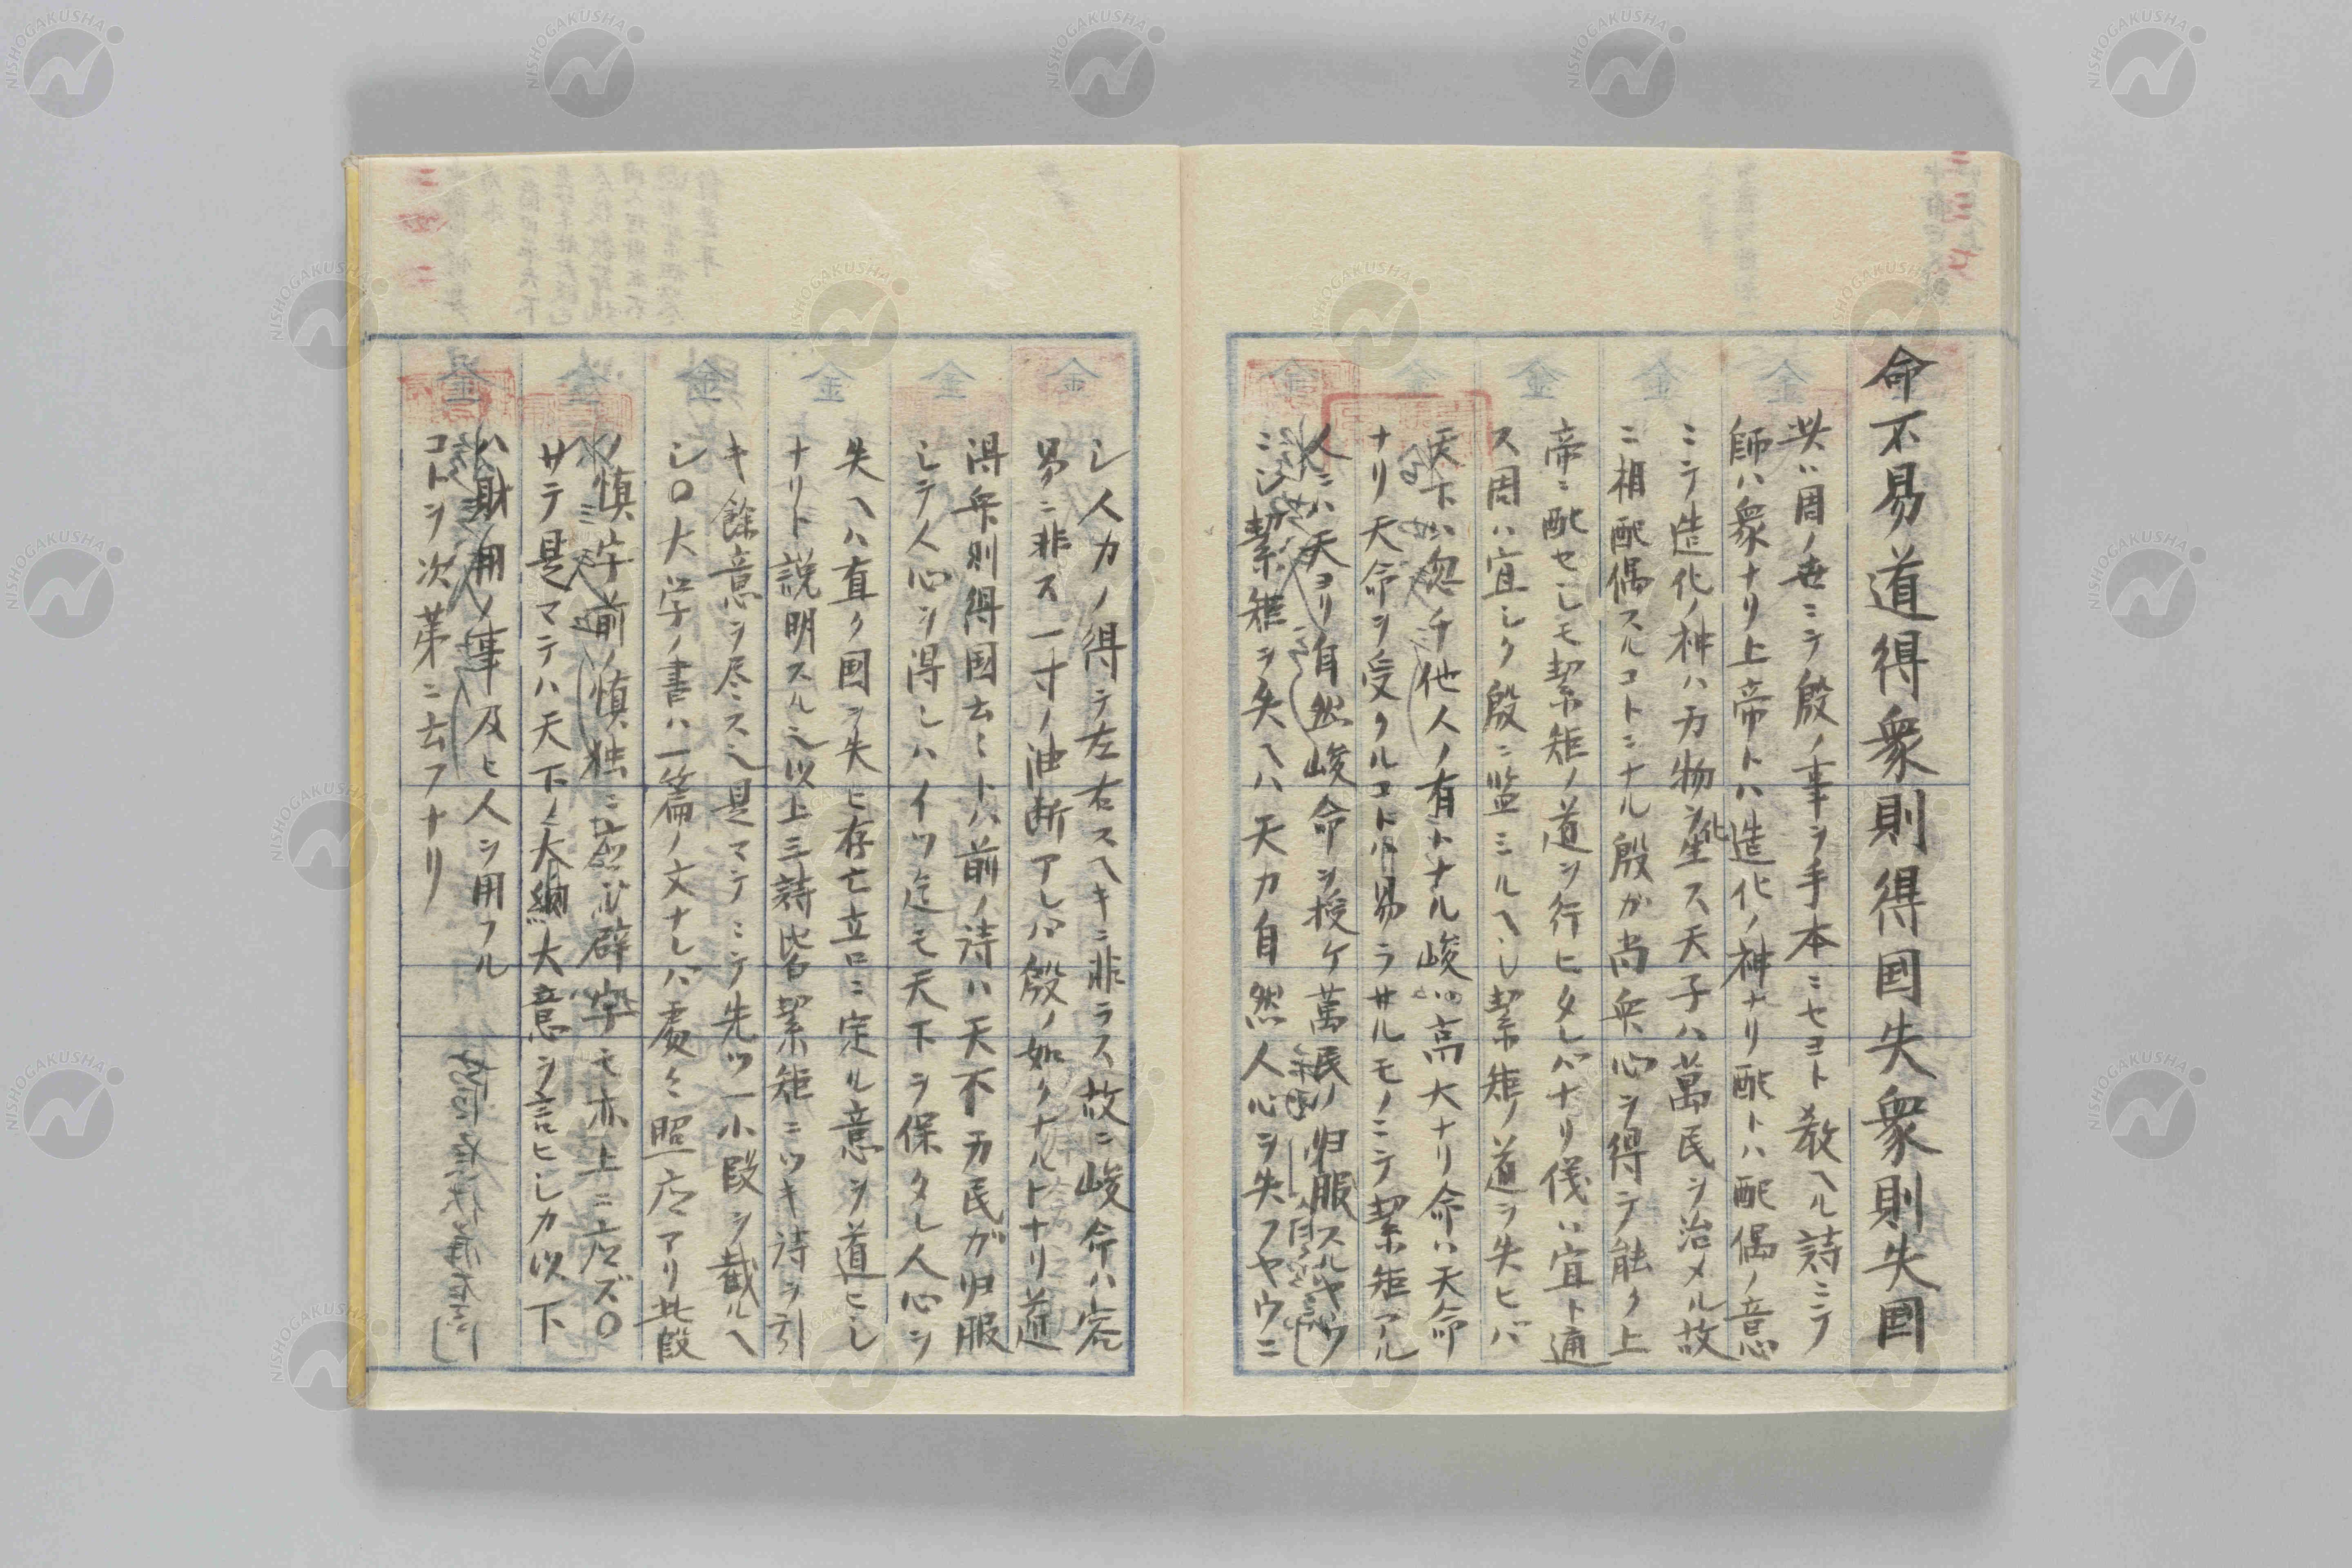 命不易道得衆則得国失衆則失国
此ハ周ノ世ニテ殷ノ事ヲ手本ニセヨト教ヘル詩ニテ
師ハ衆ナリ上帝トハ造化ノ神ナリ配トハ配偶ノ意
ニテ造化ノ神ハ万物ヲ生ス天子ハ萬民ヲ治メル故
ニ相配偶スルコトニナル殷カ尚衆心ヲ得テ能ク上
帝ニ配セしモ絜矩ノ道ヲ行ヒタレバナリ儀ハ宜ト通
ス周ハ宜しク殷ニ監ミルヘし絜矩ノ道ヲ失ヒバ
天下ハ忽チ他人ノ有トナル峻ハ高大ナリ命ハ天命
ナリ天命ヲ受クルコトハ易ラサルモノニテ絜矩アル
人ニハ天ヨリ自然峻命ヲ授ケ萬民ノ归服スルヤウ
ニし絜矩ヲ失ヘハ天カ自然人心ヲ失フヤウニ
し人力ノ得テ左右スヘキニ非ラス故ニ峻命ハ容
易ニ非ス一寸ノ油断アレバ殷ノ如クナルトナリ道
得衆則得国云々トハ前ノ詩ハ天下万民ガ归服
しテ人心ヲ得しハイツ迄モ天下ヲ保タし人心ヲ
失ヘハ直ク国ヲ失ヒ存亡立口ニ定ル意ヲ道ヒし
ナリト説明スル也以上三詩皆絜矩ニツキ詩ヲ引
キ餘意ヲ尽ス也是マテニテ先ツ一小段ヲ截ルヘ
し〇大学ノ書ハ一篇ノ文ナレバ處々照应アリ此段
ノ慎字前ノ慎独ニ应ジ辟字モ亦上ニ应ズ〇
サテ是マテハ天下ノ大綱大意ヲ言ヒしカ以下
ハ財用ノ事及ヒ人ヲ用フル
コトヲ次第ニ云フナリ
NISHOGAKUSHA